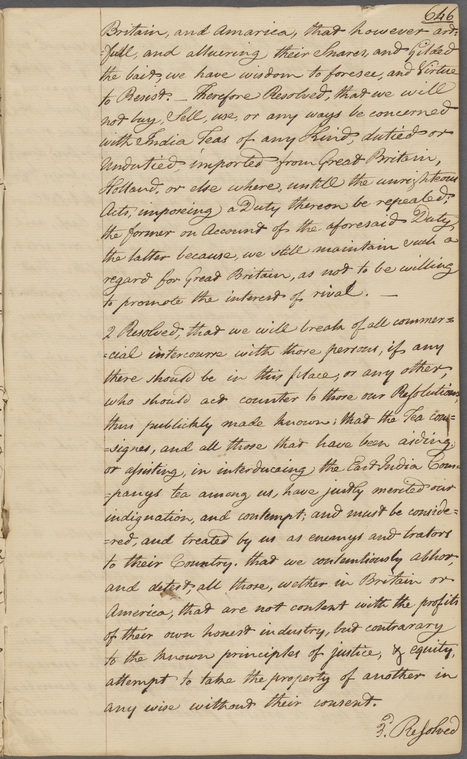 646
Britain, and Amarica, that however art=
=full, and alluering their Snares, and Gilded
the bait, we have wisdom to foresee, and Virtue
to Resist. — Therefore Resolved, that we will
not buy, Sell, use, or any ways be concerned
with India Teas of any Kind, dutied or
Undutied, imported from Great Britain,
Holland, or else where, untill the unrighteous
Acts, imposeing a Duty thereon be repealed,
the former on Account of the aforesaid Duty,
the latter because, we still maintain such a
regard for Great Britain, as not to be willing
to promote the interest of rival. —
2 Resolved, that we will break of all commer=
=cial intercourse with those persons, if any
there should be in this place, or any other,
who should act counter to those our Resolutions,
thus publickly made known; that the Tea con=
=signes, and all those that have been aiding,
or assisting, in interduceing the East India Com=
=panys tea among us, have justly merited our
indignation, and contempt; and must be conside=
=red, and treated by us as enemys and trators
to their Country. that we contentiously abhor,
and detest, all those, wether in Britain or
America, that are not content with the profits
of their own honest industry, but contrarary
to the known principles of justice, & equity,
attempt to take the property of another in
any wise without their consent.
3. Resolved